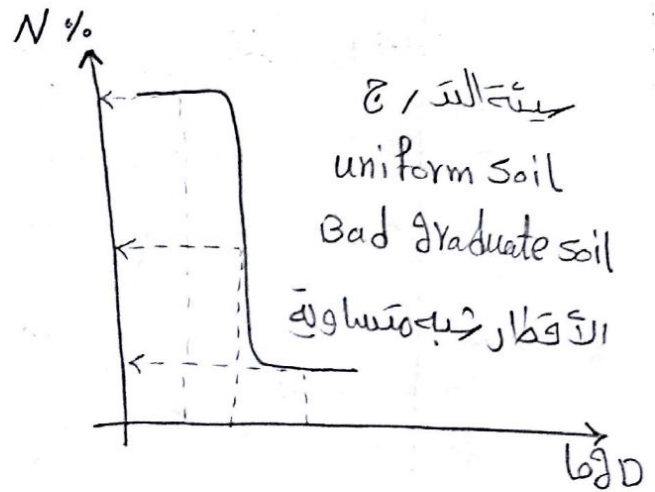 N %
سيئة التدرج
uniform soil
Bad graduate soil
الأقطار شبه متساوية
log D